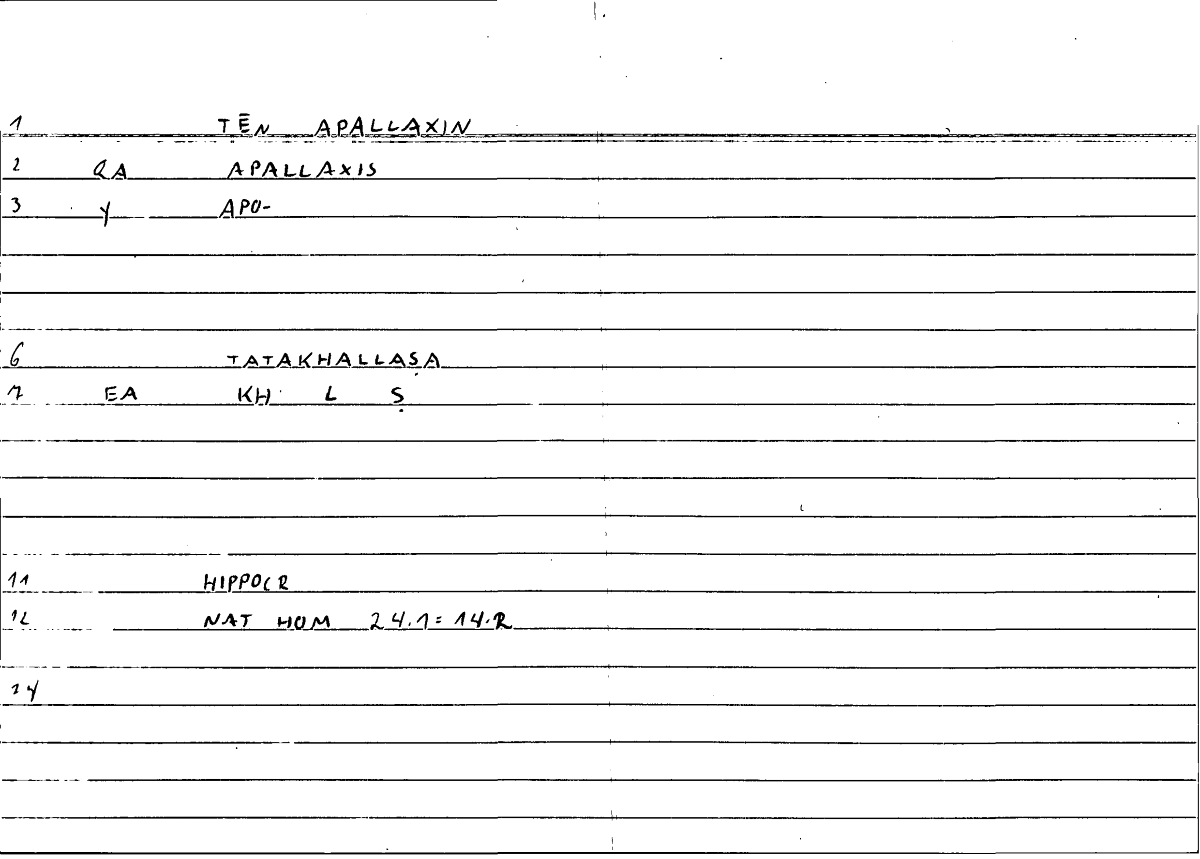 1 TĒN APALLAXIN
2 QA APALLAXIS
3 Y APO-
6 TATAKHALLAṢA
7 EA KH L Ṣ
11 HIPPOCR
12 NAT HOM 24.1 = 14.R